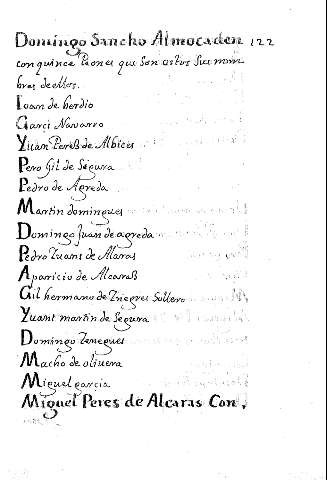 Domingo Sancho Almocaden 122
con quince Peones que son estos sus nom
bres de ellos.
Ioan de berdio
Garçi Navarro
Yuan Pereß de Albices
Pero Gil de Segura
Pedro de Agreda
Martin domingues
Domingo Juan de agreda
Pedro Iuans de Alaras
Aparicio de Alcaraß
Gil hermano de Ynegues Sollero
Yuant martin de Segura
Domingo Yenegues
Macho de oliuera
Miguel garcia
Miguel Peres de Alcaras Con,